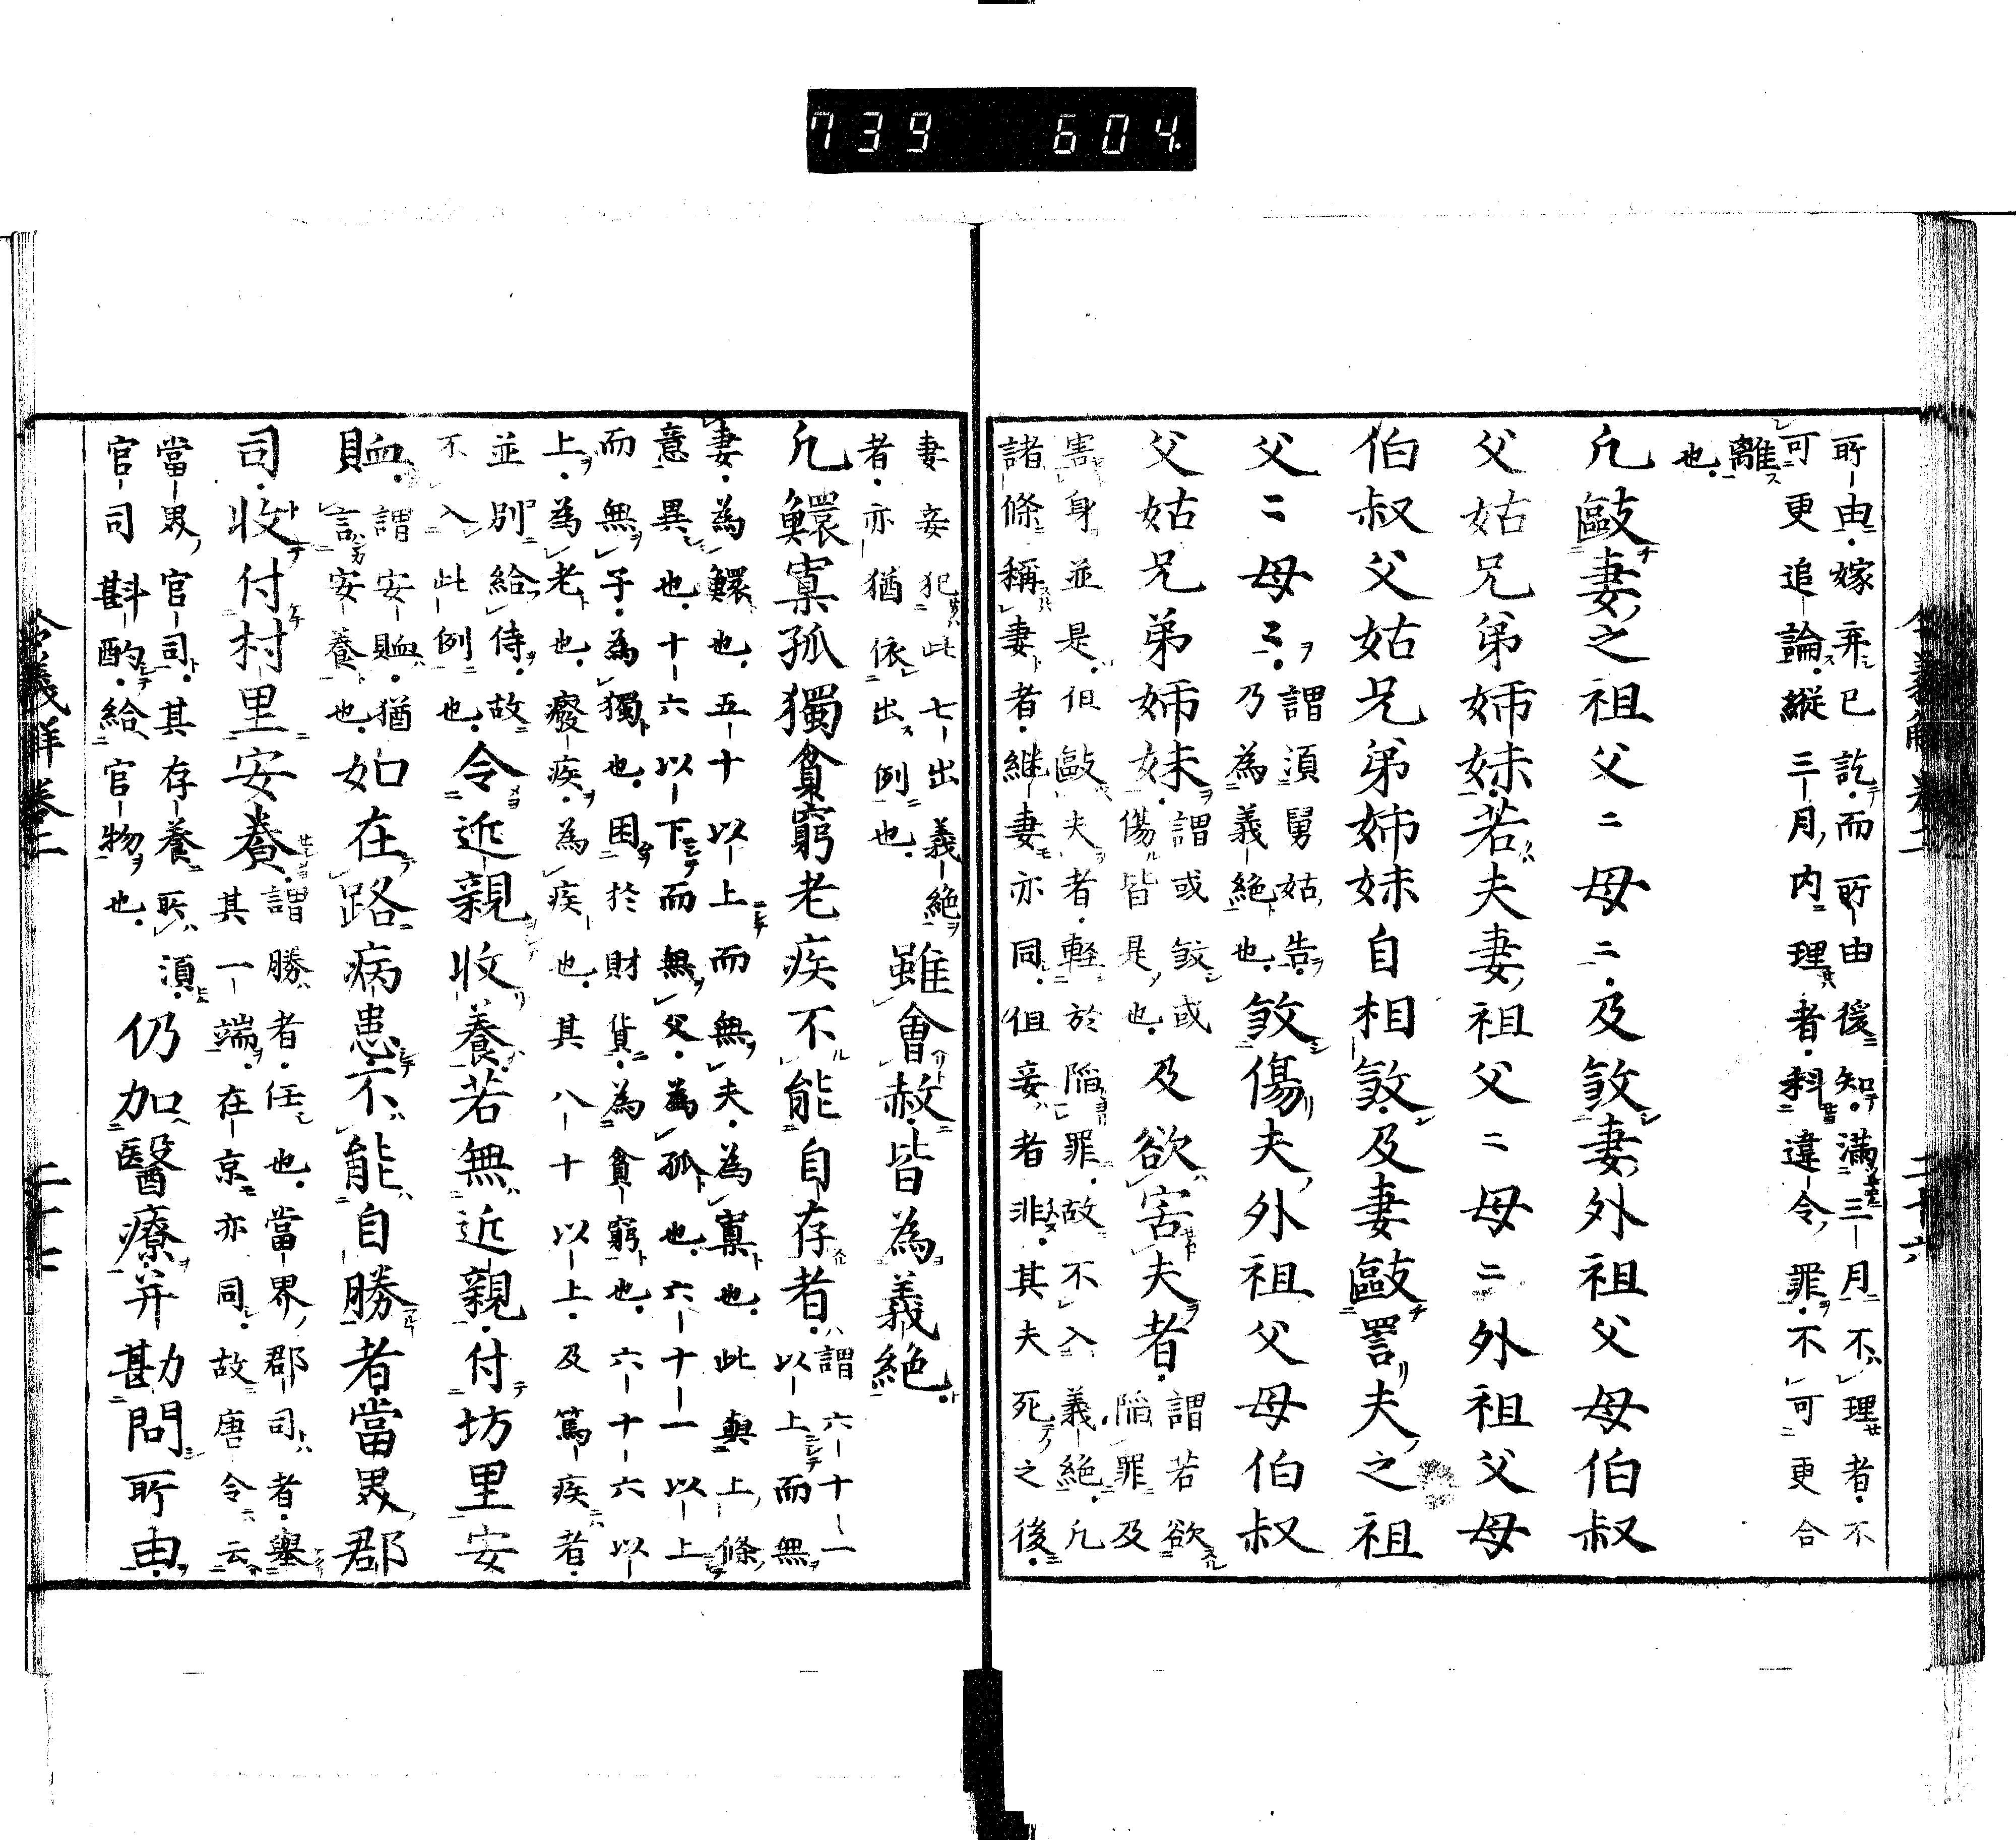 739 604.
令義解卷二 二十六
所由嫁弃已訖而所由後知滿三月不理者不
可更追論縱三月内理者科違令罪不可更合
離
也
凢敺妻之祖父〻母〻及煞妻外祖父母伯叔
父姑兄弟姉妹若夫妻祖父〻母〻外祖父母
伯叔父姑兄弟姉妹自相煞及妻敺詈夫之祖
父〻母〻謂須舅姑告乃為義絶也煞傷夫外祖父母伯叔
父姑兄弟姉妹謂或煞或傷皆是也及欲害夫者謂若欲陥罪及
害身並是但敺夫者軽於陥罪故不入義絶凢
諸條稱妻者継妻亦同但妾者非其夫死之後
妻妾犯此七出義絶者亦猶依出例也雖會赦皆為義絶
凢鰥寡孤獨貧窮老疾不能自存者謂六十一以上而無
妻為鰥也五十以上而無夫為寡也此與上條
意異也十六以下而無父為孤也六十一以上
而無子為獨也困於財貨為貧窮也六十六以
上為老也癈疾為疾也其八十以上及篤疾者
並別給侍故不入此例也令近親收養若無近親付坊里安
賉謂安賉猶言安養也如在路病患不能自勝者當界郡
司收付村里安養謂勝者任也當界郡司者舉其一端在京亦同故唐令云
當界官司其存養所須官司斟酌給官物也仍加醫療并勘問所由
令義解卷二 二十七